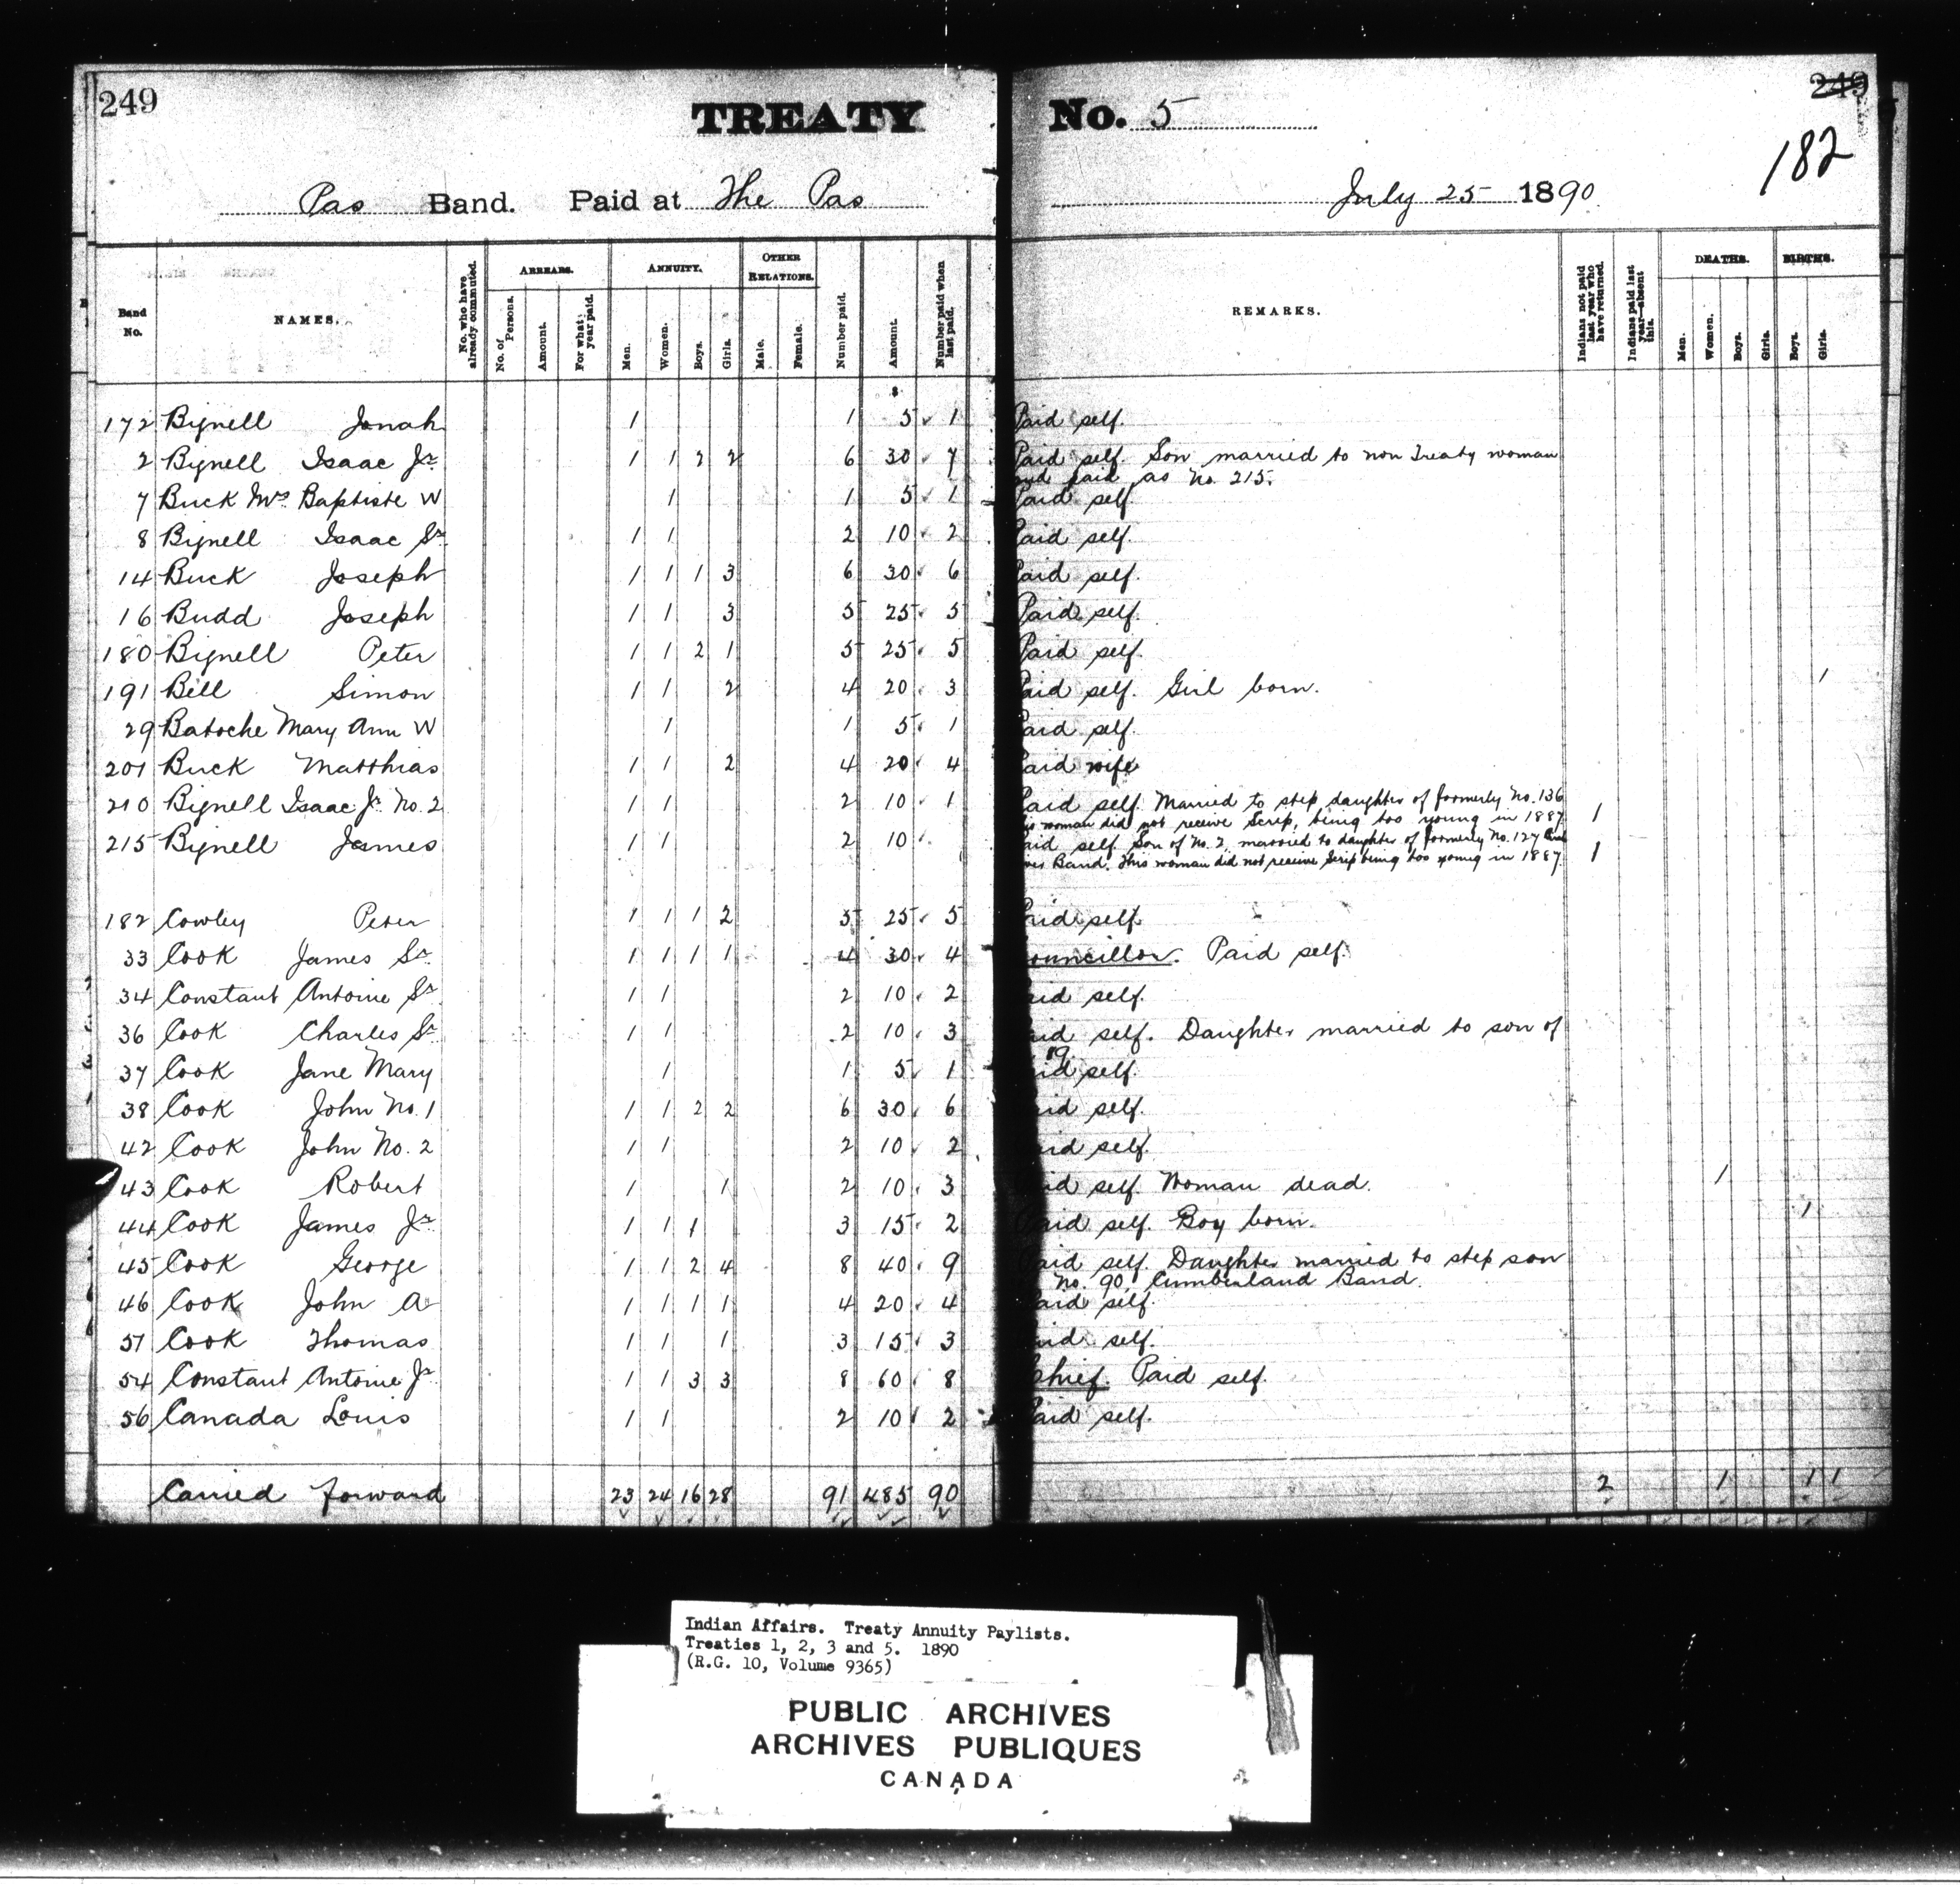 249
249
TREATY No. 5
182
Pas Band. Paid at The Pas July 25 1890.
Band No.
NAMES.
No. who have already commuted.
ARREARS.
No. of Persons.
Amount.
For what year paid.
ANNUITY.
Men.
Women.
Boys.
Girls.
OTHER RELATIONS.
Male.
Female.
Number paid.
Amount.
Number paid when last paid.
REMARKS.
Indians not paid last year who have returned.
Indians paid last year—absent this.
DEATHS.
Men.
Women.
Boys.
Girls.
BIRTHS.
Boys.
Girls.
$
172 Bignell Jonah 1 1 5 1 Paid self.
2 Bignell Isaac Jr. 1 1 2 2 6 30 7 Paid self. Son married to non Treaty woman
and paid as No. 215.
7 Buck Mrs. Baptiste W 1 1 5 1 Paid self
8 Bignell Isaac Sr. 1 1 2 10 2 Paid self.
14 Buck Joseph 1 1 1 3 6 30 6 Paid self.
16 Budd Joseph 1 1 3 5 25 5 Paid self.
180 Bignell Peter 1 1 2 1 5 25 5 Paid self.
191 Bell Simon 1 1 2 4 20 3 Paid self. Girl born. 1
29 Batoche Mary Ann W 1 1 5 1 Paid self.
201 Buck Matthias 1 1 2 4 20 4 Paid wife
210 Bignell Isaac Jr. No. 2 1 1 2 10 1 Paid self. Married to step daughter of formerly No. 136
woman did not receive Scrip, being too young in 1887. 1
215 Bignell James 1 1 2 10 Paid self. Son of No. 2, married to daughter of formerly No. 127
Band. This woman did not receive Scrip being too young in 1887. 1
182 Cowley Peter 1 1 1 2 5 25 5 Paid self
33 Cook James Sr. 1 1 1 1 4 30 4 Councillor. Paid self.
34 Constant Antoine Sr. 1 1 2 10 2 Paid self.
36 Cook Charles Sr. 1 1 2 10 3 Paid self. Daughter married to son of
89.
37 Cook Jane Mary 1 1 5 1 Paid self.
38 Cook John No. 1 1 1 2 2 6 30 6 Paid self.
42 Cook John No. 2 1 1 2 10 2 Paid self.
43 Cook Robert 1 1 2 10 3 Paid self. Woman dead. 1
44 Cook James Jr. 1 1 1 3 15 2 Paid self. Boy born. 1
45 Cook George 1 1 2 4 8 40 9 Paid self. Daughter married to step son
No. 90, Cumberland Band.
46 Cook John A 1 1 1 1 4 20 4 Paid self.
51 Cook Thomas 1 1 1 3 15 3 Paid self.
54 Constant Antoine Jr. 1 1 3 3 8 60 8 Chief. Paid self.
56 Canada Louis 1 1 2 10 2 Paid self.
Carried forward 23 24 16 28 91 485 90 2 1 1 1
Indian Affairs. Treaty Annuity Paylists.
Treaties 1, 2, 3 and 5. 1890
(R.G. 10, Volume 9365)
PUBLIC ARCHIVES
ARCHIVES PUBLIQUES
CANADA